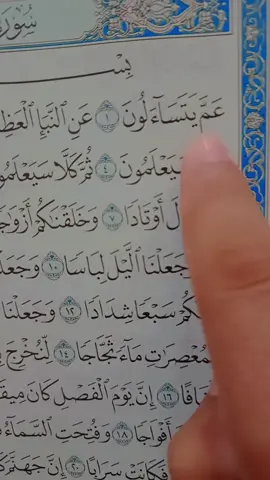 سُورَ
بِسْـ
عَمَّ يَتَسَآءَلُونَ ١ عَنِ ٱلنَّبَإِ ٱلْعَظِ
يَعْلَمُونَ ٤ ثُمَّ كَلَّا سَيَعْلَمُو
أَوْتَادًا ٧ وَخَلَقْنَٰكُمْ أَزْوَٰجًا
جَعَلْنَا ٱلَّيْلَ لِبَاسًا ١٠ وَجَعَلْ
كُمْ سَبْعًا شِدَادًا ١٢ وَجَعَلْنَا
مُعْصِرَٰتِ مَآءً ثَجَّاجًا ١٤ لِّنُخْرِجَ بِ
فَافًا ١٦ إِنَّ يَوْمَ ٱلْفَصْلِ كَانَ مِيقَ
أَفْوَاجًا ١٨ وَفُتِحَتِ ٱلسَّمَآءُ فَ
فَكَانَتْ سَرَابًا ٢٠ إِنَّ جَهَنَّمَ كَ